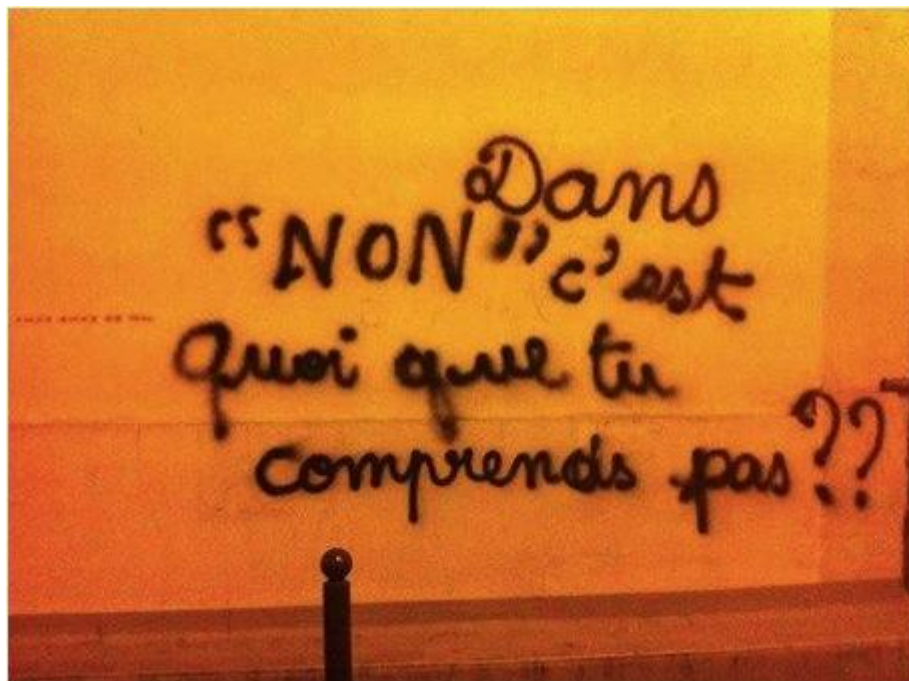 Dans
“NON” c'est
quoi que tu
comprends pas??